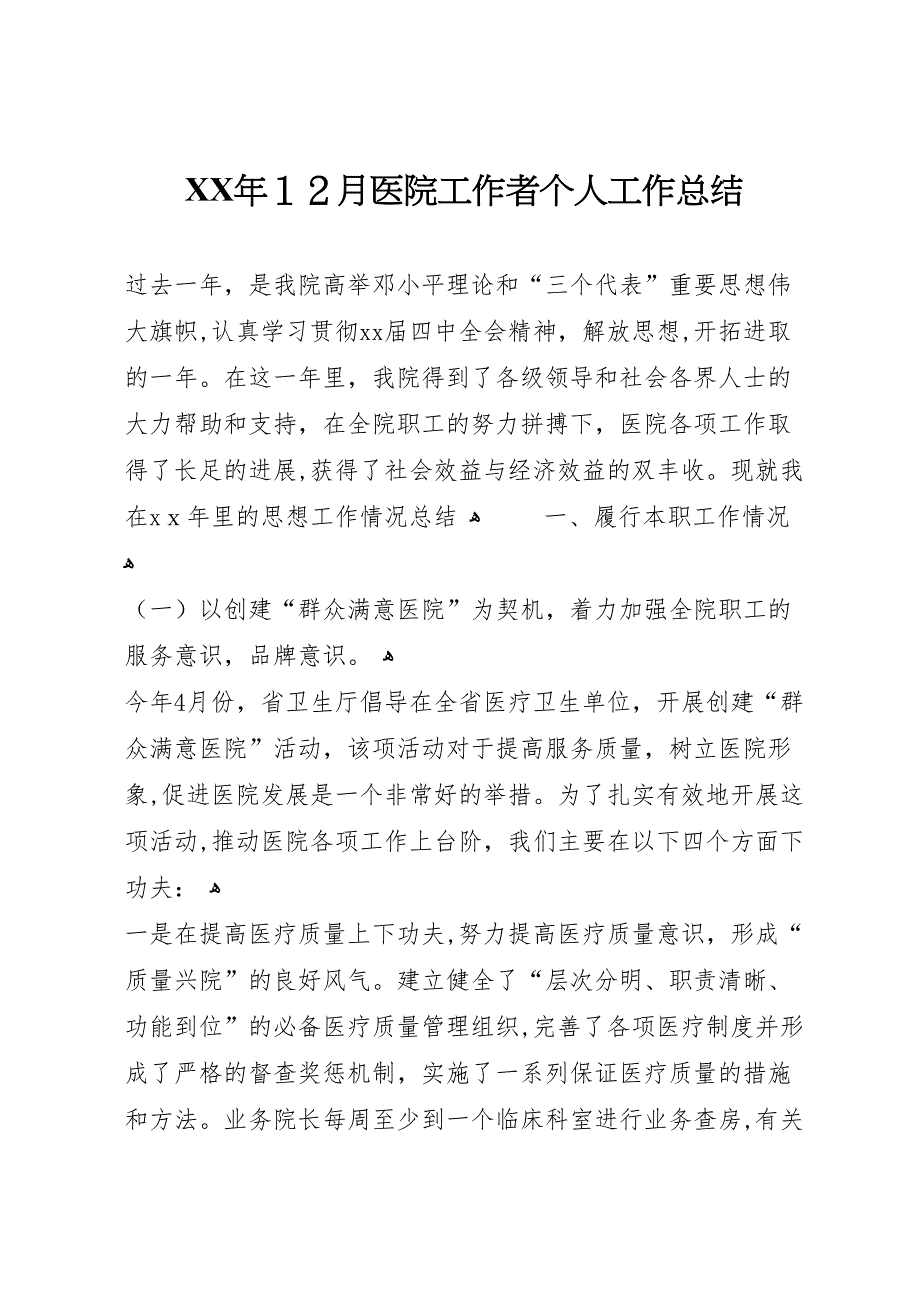 XX年１２月医院工作者个人工作总结
过去一年，是我院高举邓小平理论和“三个代表”重要思想伟
大旗帜,认真学习贯彻xx届四中全会精神，解放思想,开拓进取
的一年。在这一年里，我院得到了各级领导和社会各界人士的
大力帮助和支持，在全院职工的努力拼搏下，医院各项工作取
得了长足的进展,获得了社会效益与经济效益的双丰收。现就我
在xｘ年里的思想工作情况总结 ﻫ 一、履行本职工作情况
ﻫ
（一）以创建“群众满意医院”为契机，着力加强全院职工的
服务意识，品牌意识。 ﻫ
今年4月份，省卫生厅倡导在全省医疗卫生单位，开展创建“群
众满意医院”活动，该项活动对于提高服务质量，树立医院形
象,促进医院发展是一个非常好的举措。为了扎实有效地开展这
项活动,推动医院各项工作上台阶，我们主要在以下四个方面下
功夫： ﻫ
一是在提高医疗质量上下功夫,努力提高医疗质量意识，形成“
质量兴院”的良好风气。建立健全了“层次分明、职责清晰、
功能到位”的必备医疗质量管理组织,完善了各项医疗制度并形
成了严格的督查奖惩机制，实施了一系列保证医疗质量的措施
和方法。业务院长每周至少到一个临床科室进行业务查房,有关